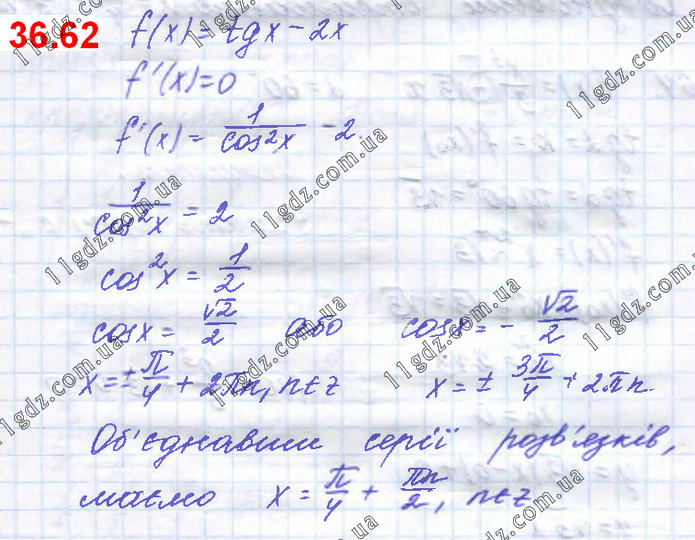 36.62 f(x) = tgx - 2x
f'(x)=0
f'(x) = 1/cos²x - 2.
1/cos²x = 2
cos²x = 1/2
cosx = √2/2 або cosx = - √2/2
x = ± π/4 + 2πn, n∈z x = ± 3π/4 + 2πn.
Об'єднавши серії розв'язків,
маємо x = π/4 + πn/2, n∈z
11gdz.com.ua
11gdz.com.ua
11gdz.com.ua
11gdz.com.ua
11gdz.com.ua
11gdz.com.ua
11gdz.com.ua
11gdz.com.ua
11gdz.com.ua
11gdz.com.ua